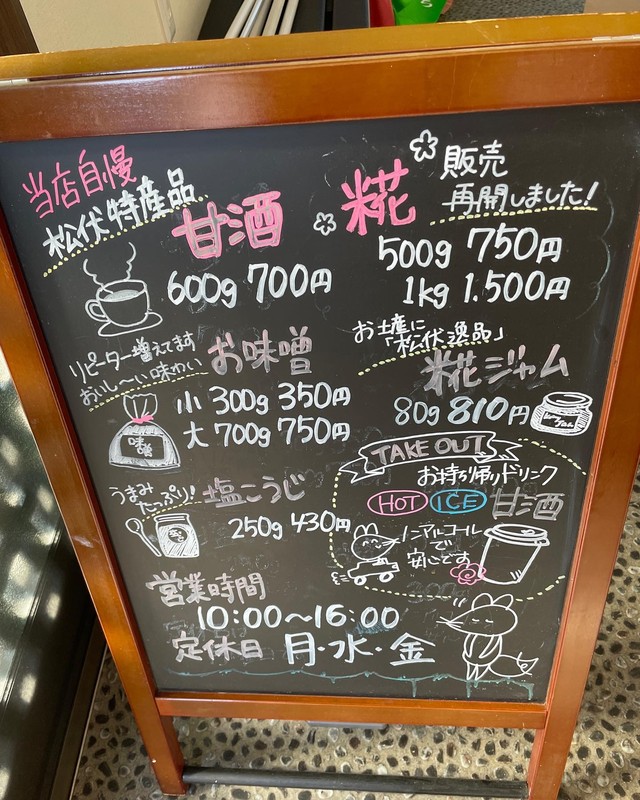 当店自慢
松伏特産品
甘酒
600g 700円
糀
販売
再開しました!
500g 750円
1kg 1.500円
リピーター増えてます
おいし〜い味わい
お味噌
小 300g 350円
大 700g 750円
味噌
お土産に
「松伏逸品」
糀ジャム
80g 810円
うまみ
たっぷり!
塩こうじ
250g 430円
TAKE OUT
お持ち帰りドリンク
HOT ICE 甘酒
ノンアルコール
で
安心です
営業時間
10:00〜16:00
定休日 月・水・金